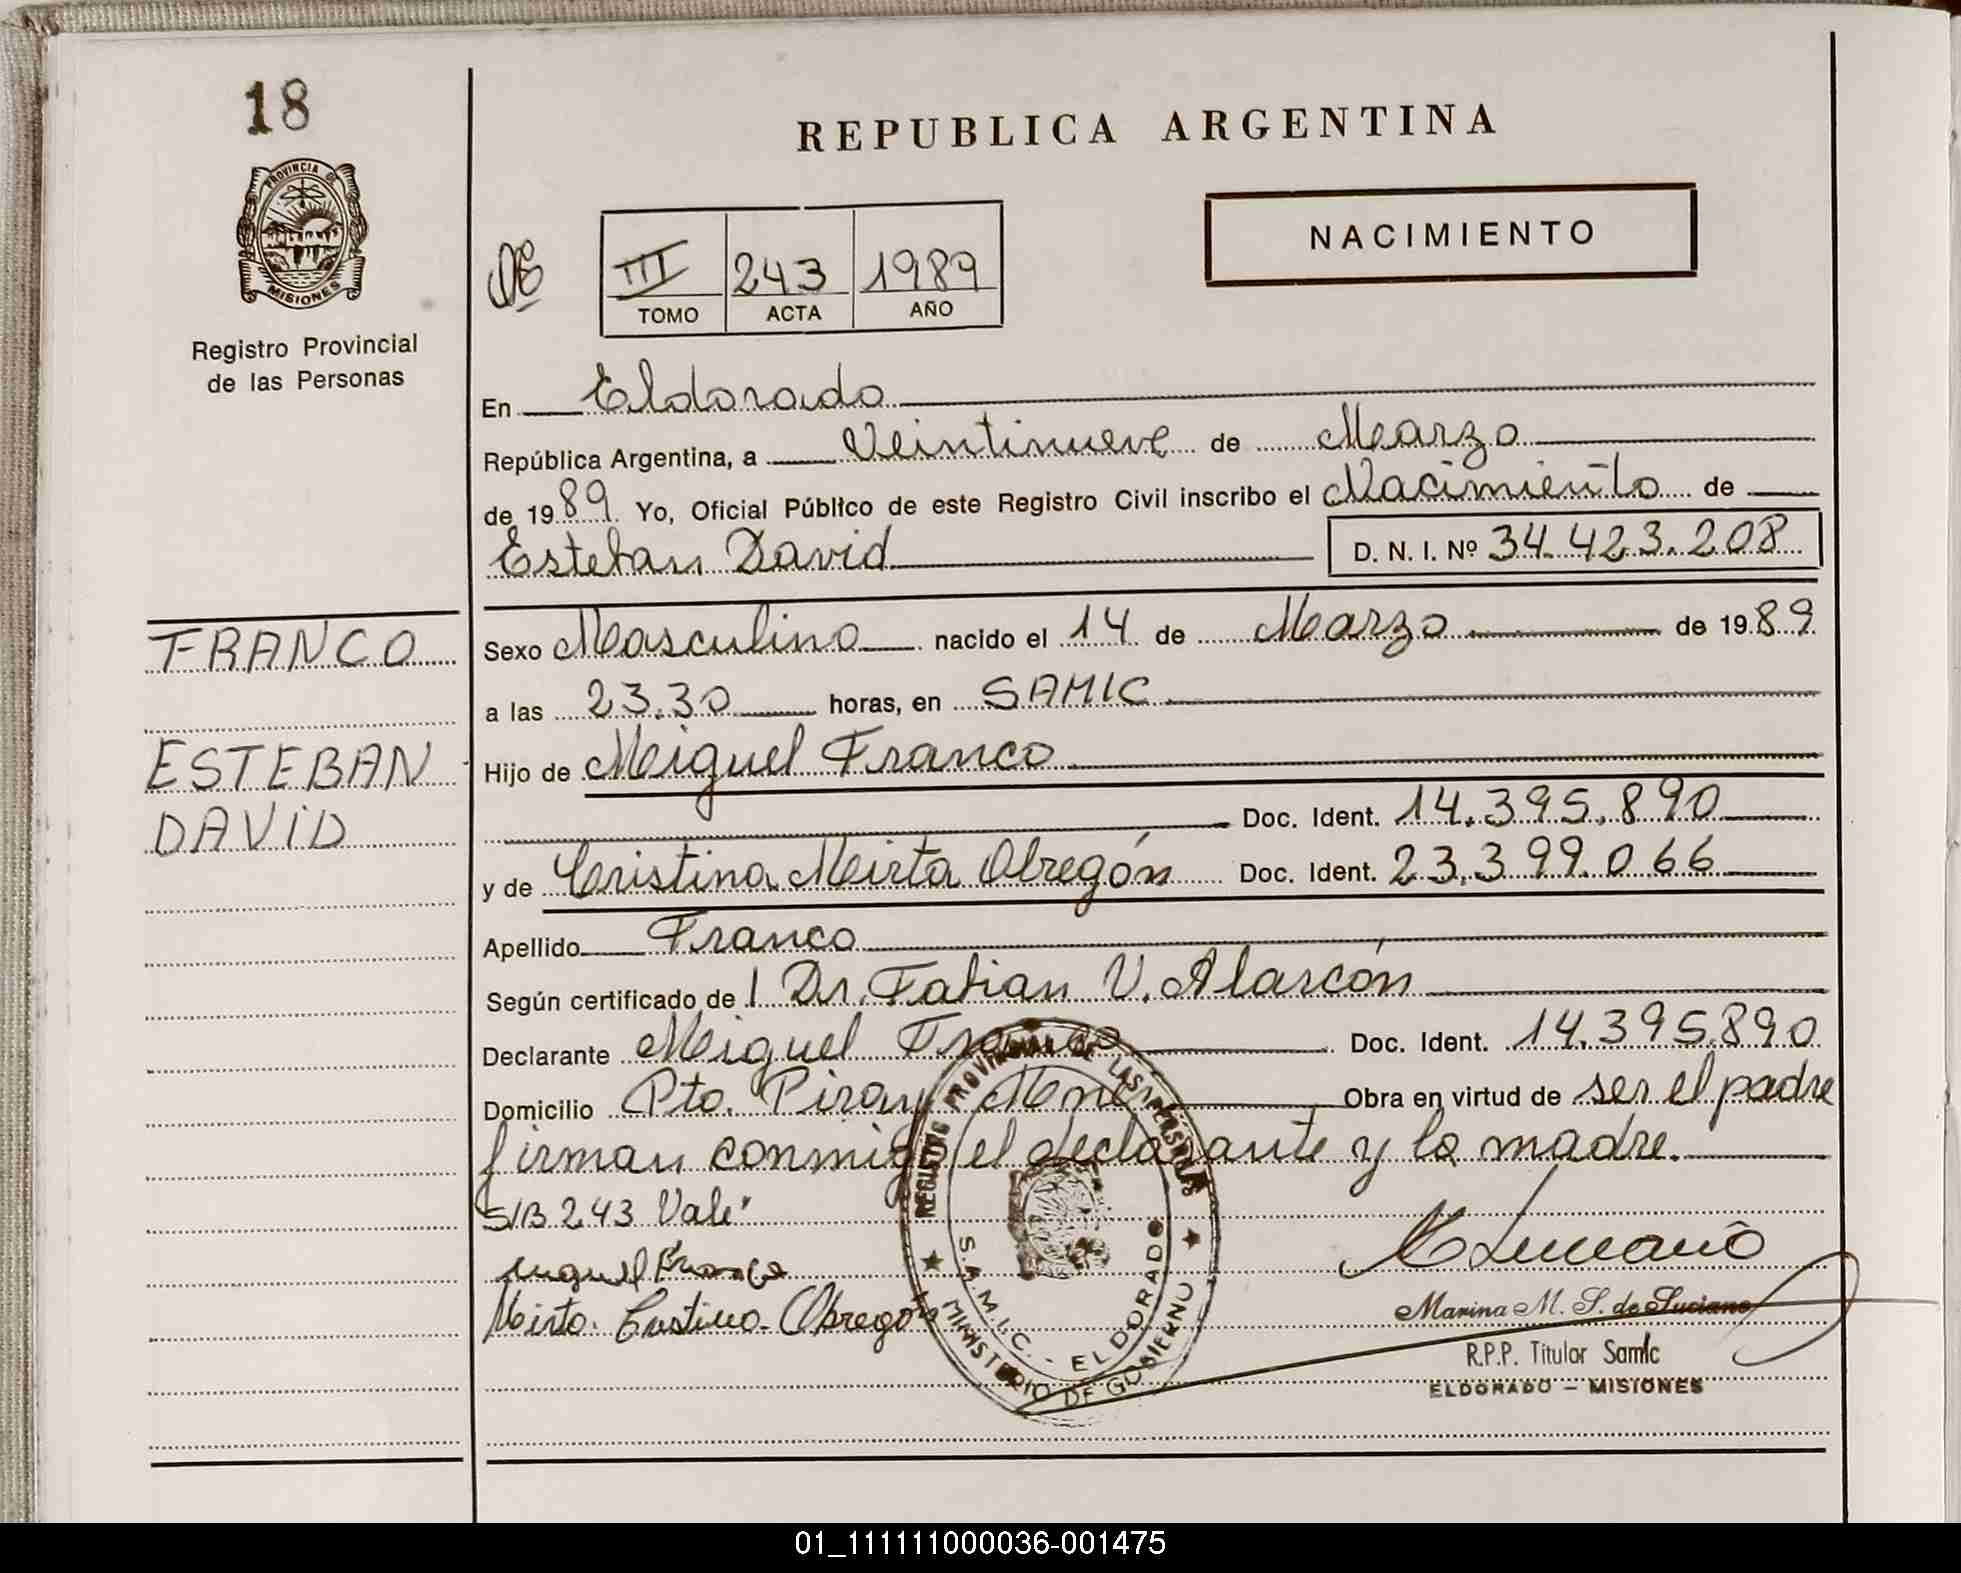 18
PROVINCIA DE
MISIONES
Registro Provincial
de las Personas
REPUBLICA ARGENTINA
NACIMIENTO
III 243 1989
TOMO ACTA AÑO
En Eldorado
República Argentina, a Veintinueve de Marzo
de 1989. Yo, Oficial Público de este Registro Civil inscribo el Nacimiento de
Esteban David D. N. I. Nº 34.423.208
FRANCO
ESTEBAN
DAVID
Sexo Masculino nacido el 14 de Marzo de 1989
a las 23.30 horas, en SAMIC
Hijo de Miguel Franco
Doc. Ident. 14.395.890
y de Cristina Mirta Obregón Doc. Ident. 23.399.066
Apellido Franco
Según certificado de l Dr. Fabian V. Alarcón
Declarante Miguel Franco Doc. Ident. 14.395.890
Domicilio Pto. Piray Mnes Obra en virtud de ser el padre
firman conmigo el declarante y la madre.
S/B 243 Vale
Miguel Franco
Mirta Cristina Obregon
REGISTRO PROVINCIAL DE LAS PERSONAS
S.A.M.I.C. - ELDORADO
MINISTERIO DE GOBIERNO
Marina M. S. de Luciano
R.P.P. Titular Samic
ELDORADO – MISIONES
01_111111000036-001475